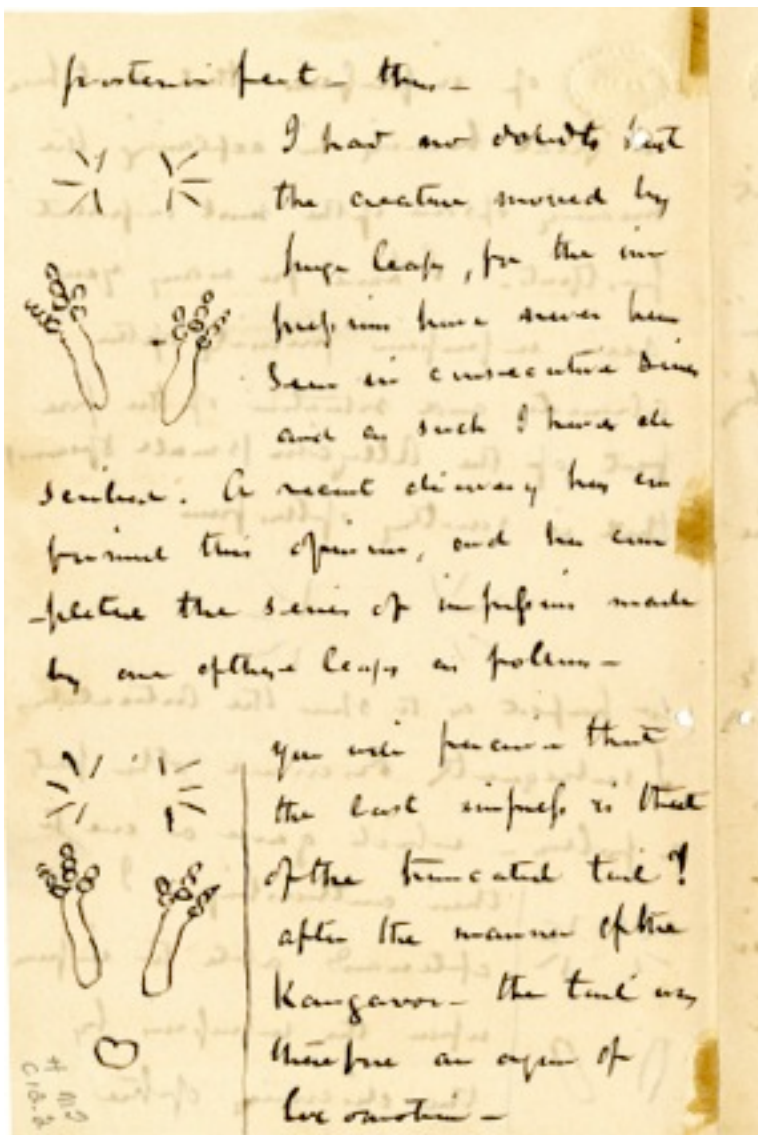 posterior feet – thus –
I had no doubts but
the creature moved by
huge leaps, for the im
pressions have never been
seen in consecutive lines
and as such I have de
scribed. A recent discovery has con
firmed this opinion, and has com
-pleted the series of impressions made
by one of these leaps as follows –
You will perceive that
the last impress is that
of the truncated tail!
after the manner of the
Kangaroo – the tail was
therefore an organ of
locomotion –